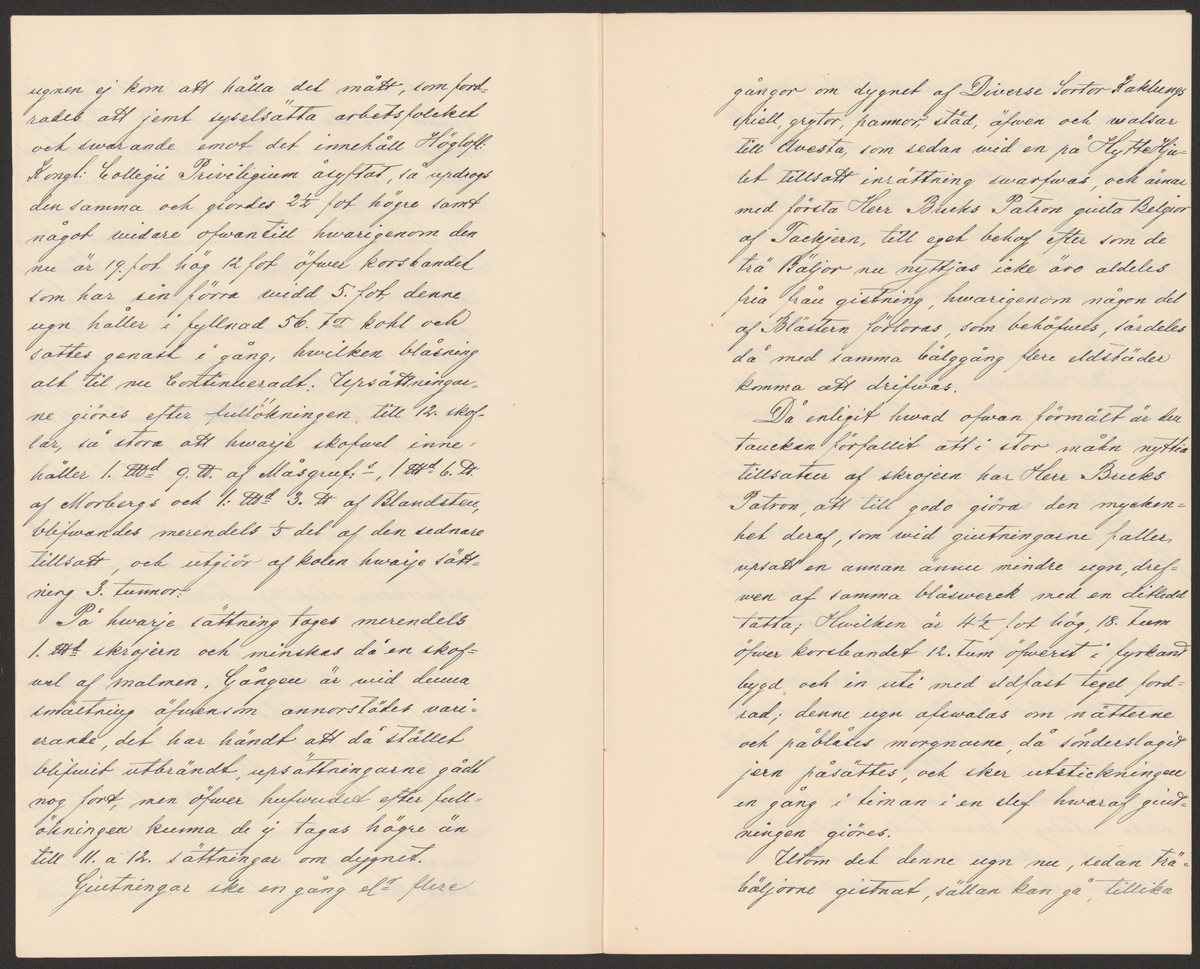 ugnen ej kom att hålla det mått, som ford-
rades att jemt syselsätta arbetsfolcket
och swarande emot det innehåll Höglofl:
Kongl: Collegii Privilegium åsyftat, så updrogs
den samma och giordes 2½ fot högre samt
något widare ofwantill hwarigenom den
nu är 19. fot hög 12 fot öfwer korsbandet
som har sin förra widd 5. fot, denne
ugn håller i fyllnad 56. tor kohl och
sattes genast i gång, hwilken blåsning
alt til nu Continueradt: Upsättningar-
ne giöres efter fullökningen till 12. skof-
lar, så stora att hwarje skofwel inne-
håller 1. ℔d 9. ℔. af Måsgruf: s, 1 ℔d 6. ℔
af Morbergs och 1: ℔d 3. ℔ af Blandsten,
blifwandes merendels ⅕ del af den sednare
tillsatt, och utgiör af kolen hwarje sätt-
ning 3. tunnor.
På hwarje sättning tages merendels
1. ℔d skrojern och minskas då en skof-
vel af malmen. Gången är wid denna
smältning äfvensom annorstädes vari-
erande, det har händt att då stället
blifwit utbrändt, upsättningarne gådt
nog fort, men öfwer hufwudet efter full-
ökningen kunna de ej tagas högre än
till 11. a 12. sättningar om dygnet.
Giutningar ske en gång elr flere
gångor om dygnet af Diverse Sortor Kaklungs
spiell, grytor, pannor, städ, äfwen och walsar
till Avesta, som sedan wid en på HytteHju-
let tillsatt inrättning swarfwas, och ärnar
med första Herr Bruks Patron giuta Belgior
af Tackjern, till eget behof efter som de
trä Bäljor nu nyttjas icke äro aldeles
fria från gistning, hwarigenom någon del
af Blästern förloras, som behöfwes, särdeles
då med samma bälggång flere eldstäder
komma att drifwas.
Då enligit hwad ofwan förmält är den
tancken förfallit att i stor måhn nyttia
tillsatser af skrojern har Herr Bruks
Patron, att till godo giöra den mycken-
het deraf, som wid giutningarne faller,
upsatt en annan ännu mindre ugn, dref-
wen af samma blåswerck med en ditledd
tätta; Hwilken är 4½ fot hög, 18. tum
öfwer korsbandet 12. tum öfwerst i fyrkant
bygd och in uti med eldfast tegel ford-
rad; denne ugn afswalas om nätterne
och påblåses morgnarne, då sönderslagit
jern påsättes, och sker utstickningen
en gång i timan i en slef. hwaraf giut-
ningen giöres.
Utom det denne ugn nu, sedan trä-
bäljorne gistnat, sällan kan gå, tillika